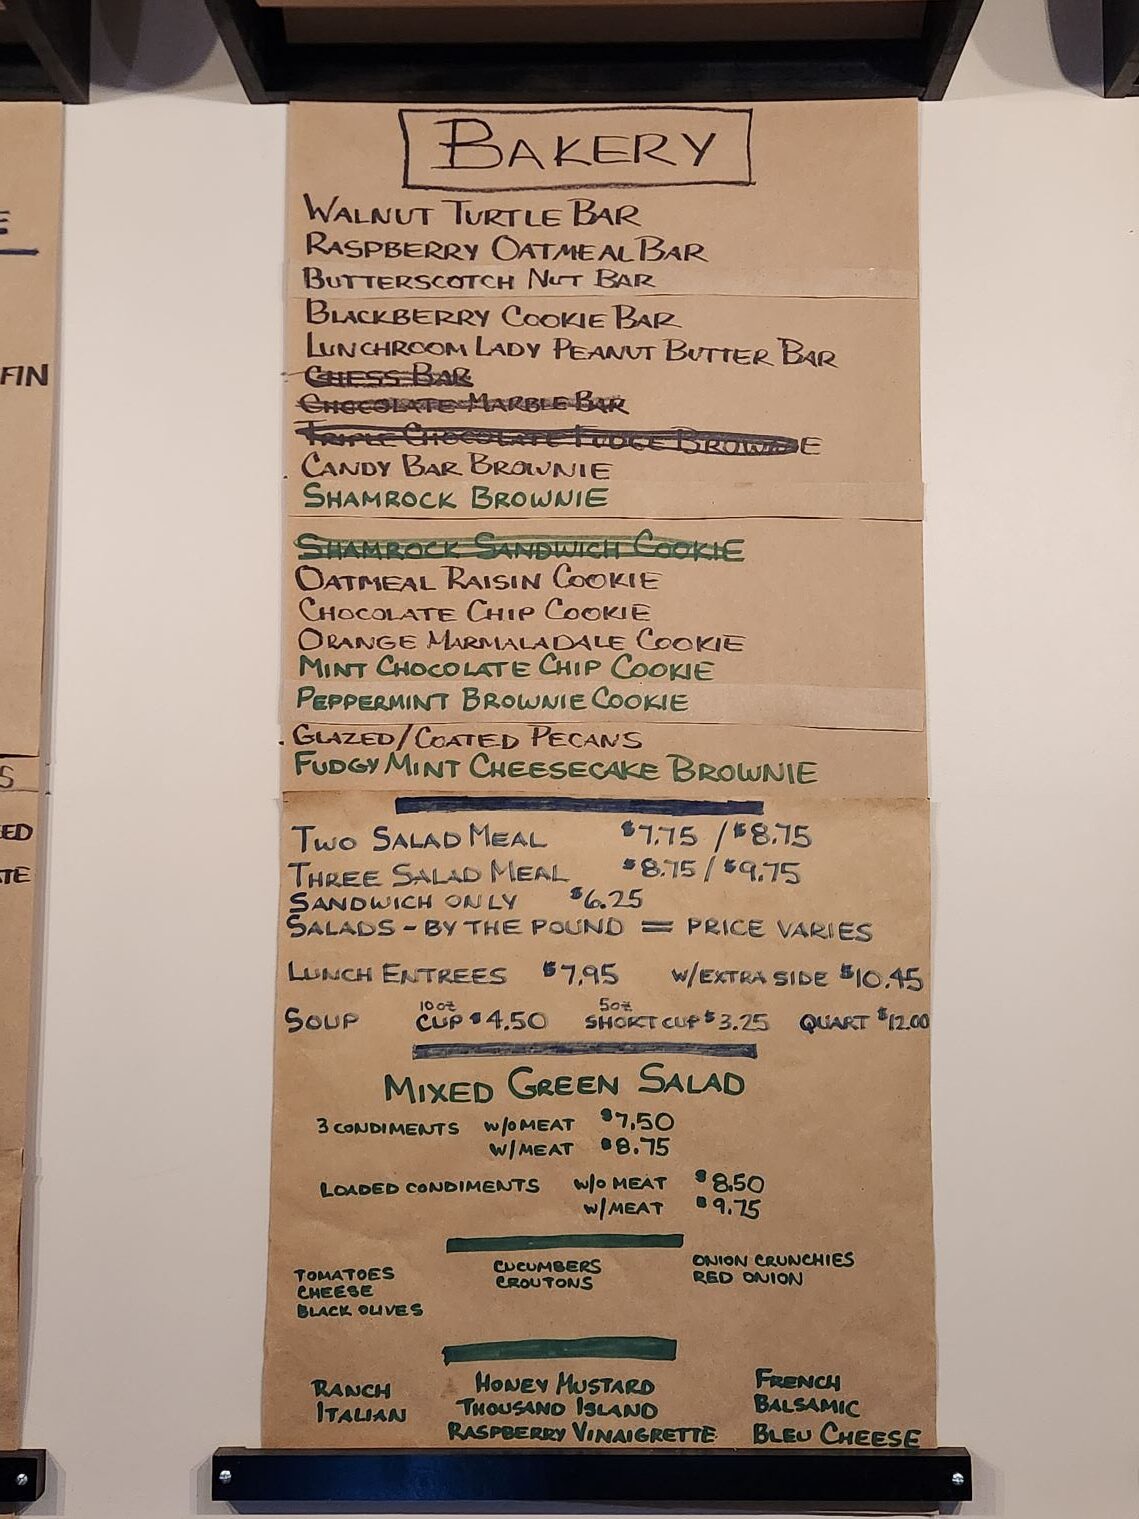 E
FIN
S
ED
TE
BAKERY
WALNUT TURTLE BAR
RASPBERRY OATMEAL BAR
BUTTERSCOTCH NUT BAR
BLACKBERRY COOKIE BAR
LUNCHROOM LADY PEANUT BUTTER BAR
CHESS BAR
CHOCOLATE MARBLE BAR
TRIPLE CHOCOLATE FUDGE BROWNIE
CANDY BAR BROWNIE
SHAMROCK BROWNIE
SHAMROCK SANDWICH COOKIE
OATMEAL RAISIN COOKIE
CHOCOLATE CHIP COOKIE
ORANGE MARMALADALE COOKIE
MINT CHOCOLATE CHIP COOKIE
PEPPERMINT BROWNIE COOKIE
GLAZED/COATED PECANS
FUDGY MINT CHEESECAKE BROWNIE
TWO SALAD MEAL $7.75 / $8.75
THREE SALAD MEAL $8.75 / $9.75
SANDWICH ONLY $6.25
SALADS - BY THE POUND = PRICE VARIES
LUNCH ENTREES $7.95 W/EXTRA SIDE $10.45
SOUP 10oz CUP $4.50 5oz SHORT CUP $3.25 QUART $12.00
MIXED GREEN SALAD
3 CONDIMENTS W/O MEAT $7.50
W/MEAT $8.75
LOADED CONDIMENTS W/O MEAT $8.50
W/MEAT $9.75
TOMATOES
CHEESE
BLACK OLIVES
CUCUMBERS
CROUTONS
ONION CRUNCHIES
RED ONION
RANCH
ITALIAN
HONEY MUSTARD
THOUSAND ISLAND
RASPBERRY VINAIGRETTE
FRENCH
BALSAMIC
BLEU CHEESE